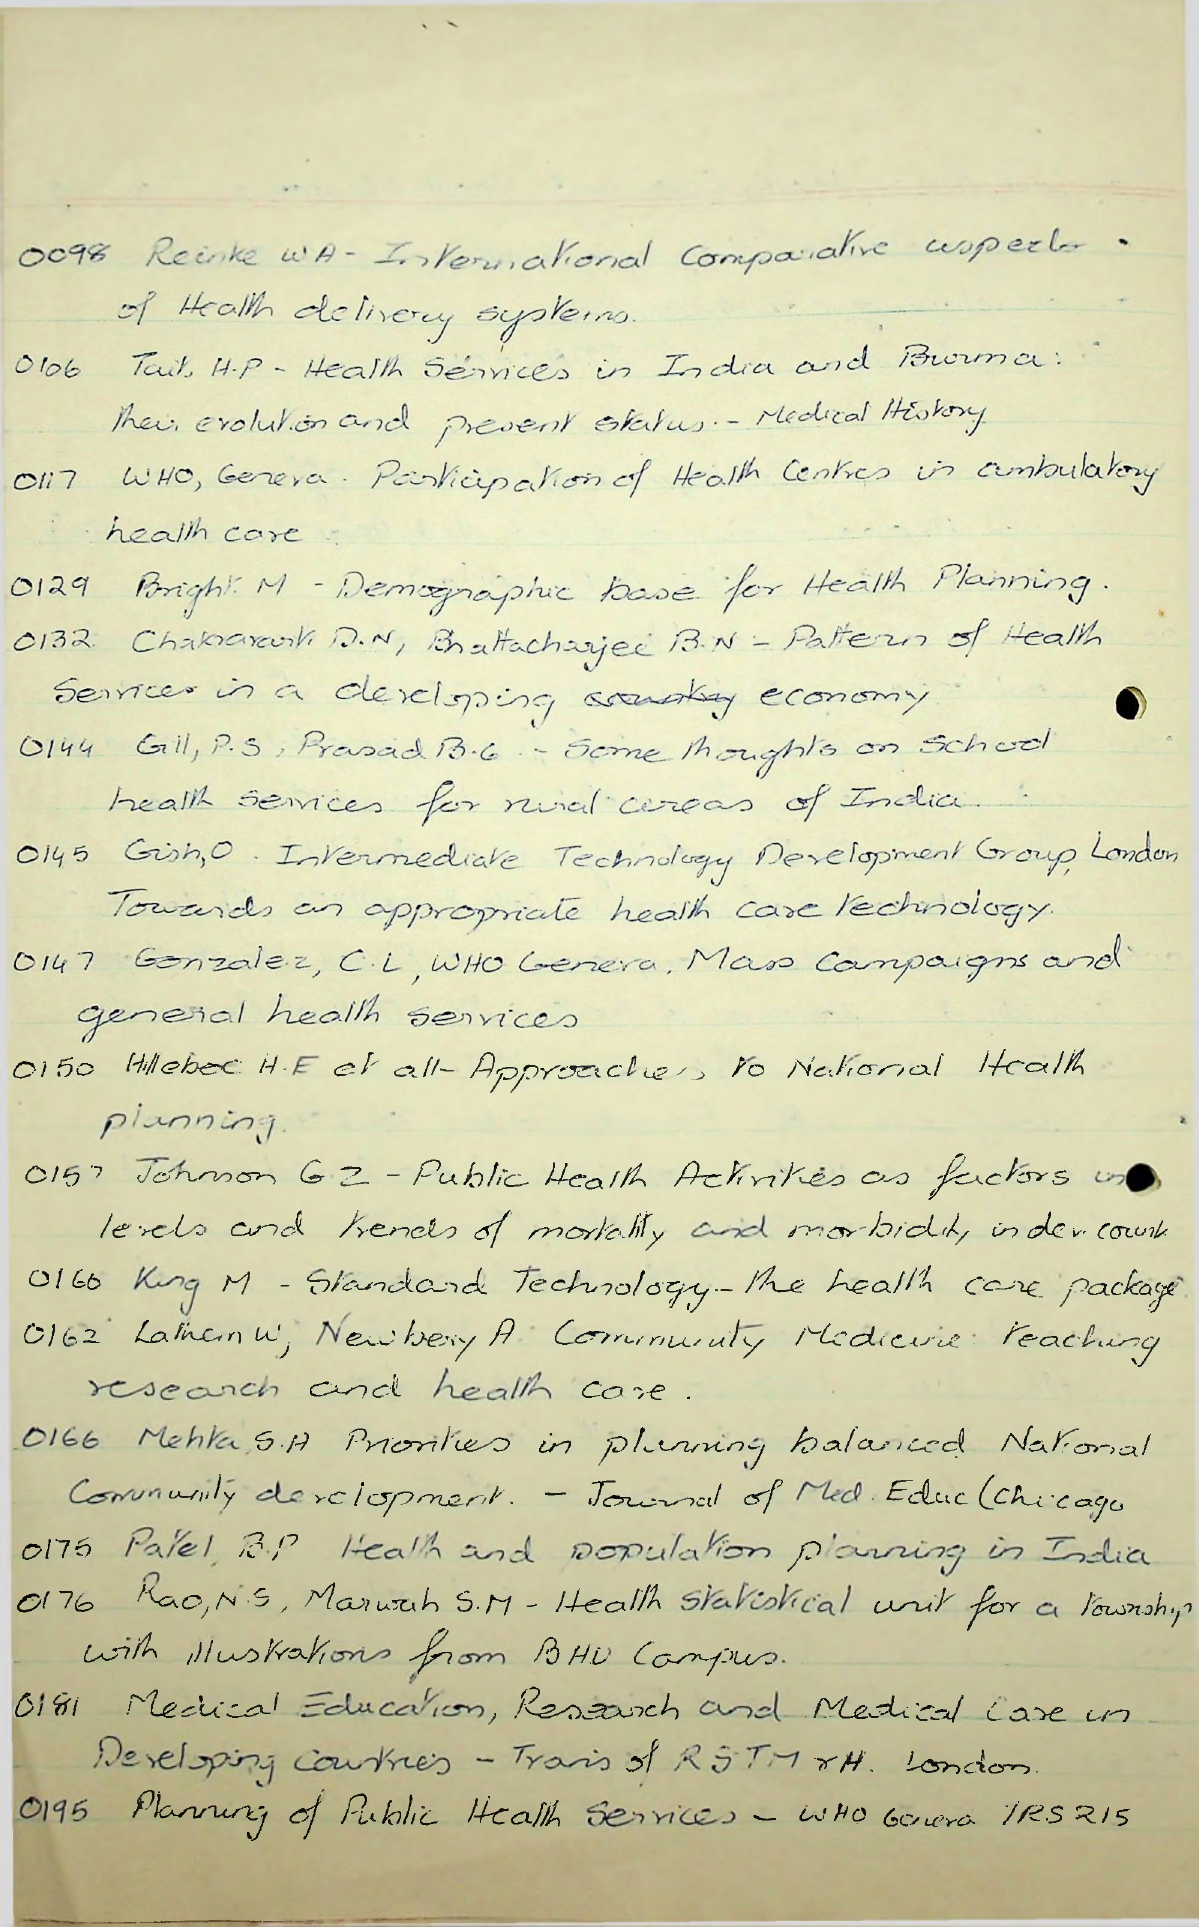 0098 Reinke W A - International Comparative aspects
of Health delivery systems.
0106 Tait, H.P - Health Services in India and Burma:
their evolution and present status. - Medical History
0117 WHO, Geneva. Participation of Health Centres in ambulatory
health care
0129 Bright M - Demographic base for Health Planning.
0132 Chakravarti D.N, Bhattacharjee B.N - Pattern of Health
Services in a developing country economy
0144 Gill, P.S, Prasad B.G - Some thoughts on School
health services for rural areas of India.
0145 Gish, O. Intermediate Technology Development Group, London
Towards an appropriate health care technology.
0147 Gonzalez, C.L, WHO Geneva. Mass Campaigns and
general health services
0150 Hilleboe H.E et all - Approaches to National Health
planning.
0157 Johnson G Z - Public Health Activities as factors in
levels and trends of mortality and morbidity in dev. count
0160 King M - Standard Technology - the health care package
0162 Lathem W, Newbery A Community Medicine: teaching
research and health care.
0166 Mehta S.H Priorities in planning balanced National
Community development. - Journal of Med. Educ (Chicago
0175 Patel, B.P Health and population planning in India
0176 Rao, N.S, Marwah S.M - Health statistical unit for a township
with illustrations from BHU Campus.
0181 Medical Education, Research and Medical Care in
Developing Countries - Trans of R S T M & H. London.
0195 Planning of Public Health Services - WHO Geneva TRS 215